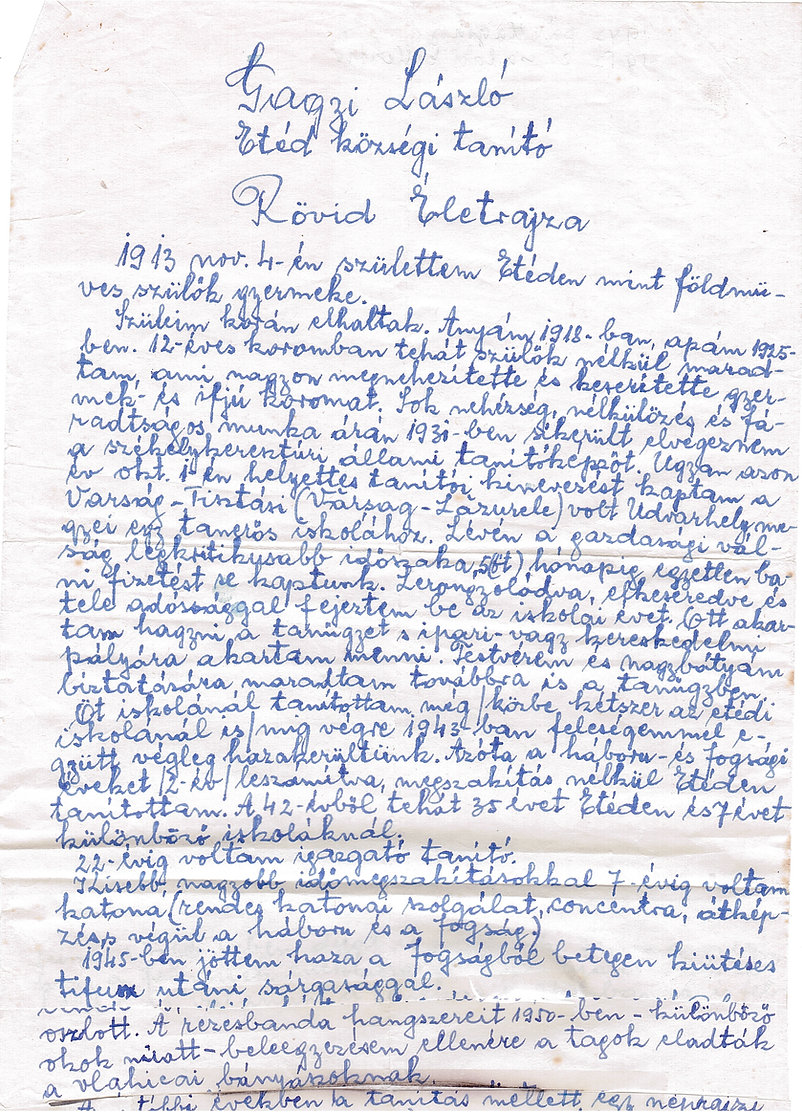 Gagzi László
Etéd községi tanító
Rövid Életrajza
1913 nov. 4-én születtem Etéden mint földmü-
ves szülők gyermeke.
Szüleim korán elhaltak. Anyám 1918-ban, apám 1925-
ben. 12-éves koromban tehát szülők nélkül marad-
tam, ami nagyon megnehezítette és keserítette gyer-
mek- és ifjú koromat. Sok nehézség, nélkülözés és fá-
radtságos munka árán 1931-ben sikerült elvégeznem
a székelykeresztúri állami tanítóképzőt. Ugyan azon
év okt. 1-én helyettes tanítói kinevezést kaptam a
Varság-Tisztási (Vărşag-Lazurele) volt Udvarhelyme-
gyei egy tanerős iskolához. Lévén a gazdasági vál-
ság legkritikusabb időszaka, 5(öt) hónapig egyetlen ba-
ni fizetést se kaptunk. Lerongyolódva, elkeseredve és
tele adóssággal fejeztem be az iskolai évet. Ott akar-
tam hagyni a tanügyet s ipari- vagy kereskedelmi
pályára akartam menni. Testvérem és nagybátyám
biztatására maradtam továbbra is a tanügyben.
Öt iskolánál tanítottam még /közbe kétszer az etédi
iskolánál is/ mig végre 1943-ban feleségemmel e-
gyütt végleg hazakerültünk. Azóta a háboru- és fogsági
éveket /2-év/ leszámítva, megszakítás nélkül Etéden
tanítottam. A 42-évből tehát 35 évet Etéden és 7 évet
különböző iskoláknál.
22-évig voltam igazgató tanító.
Kisebb nagyobb időmegszakításokkal 7-évig voltam
katona (rendes katonai szolgálat, concentra, átkép-
zés, végül a háboru és a fogság)
1945-ben jöttem haza a fogságból betegen kiütéses
tifusz utáni sárgasággal.
oszlott. A rézesbanda hangszereit 1950-ben - különböző
okok miatt - beleegyezésem ellenére a tagok eladták
a vlăhicai bányászoknak.
években a tanítás mellett egy néprajzi